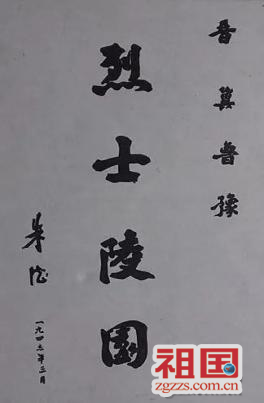 晋冀魯豫
烈士陵園
朱德
一九四六年三月
祖国
zgzzs.com.cn